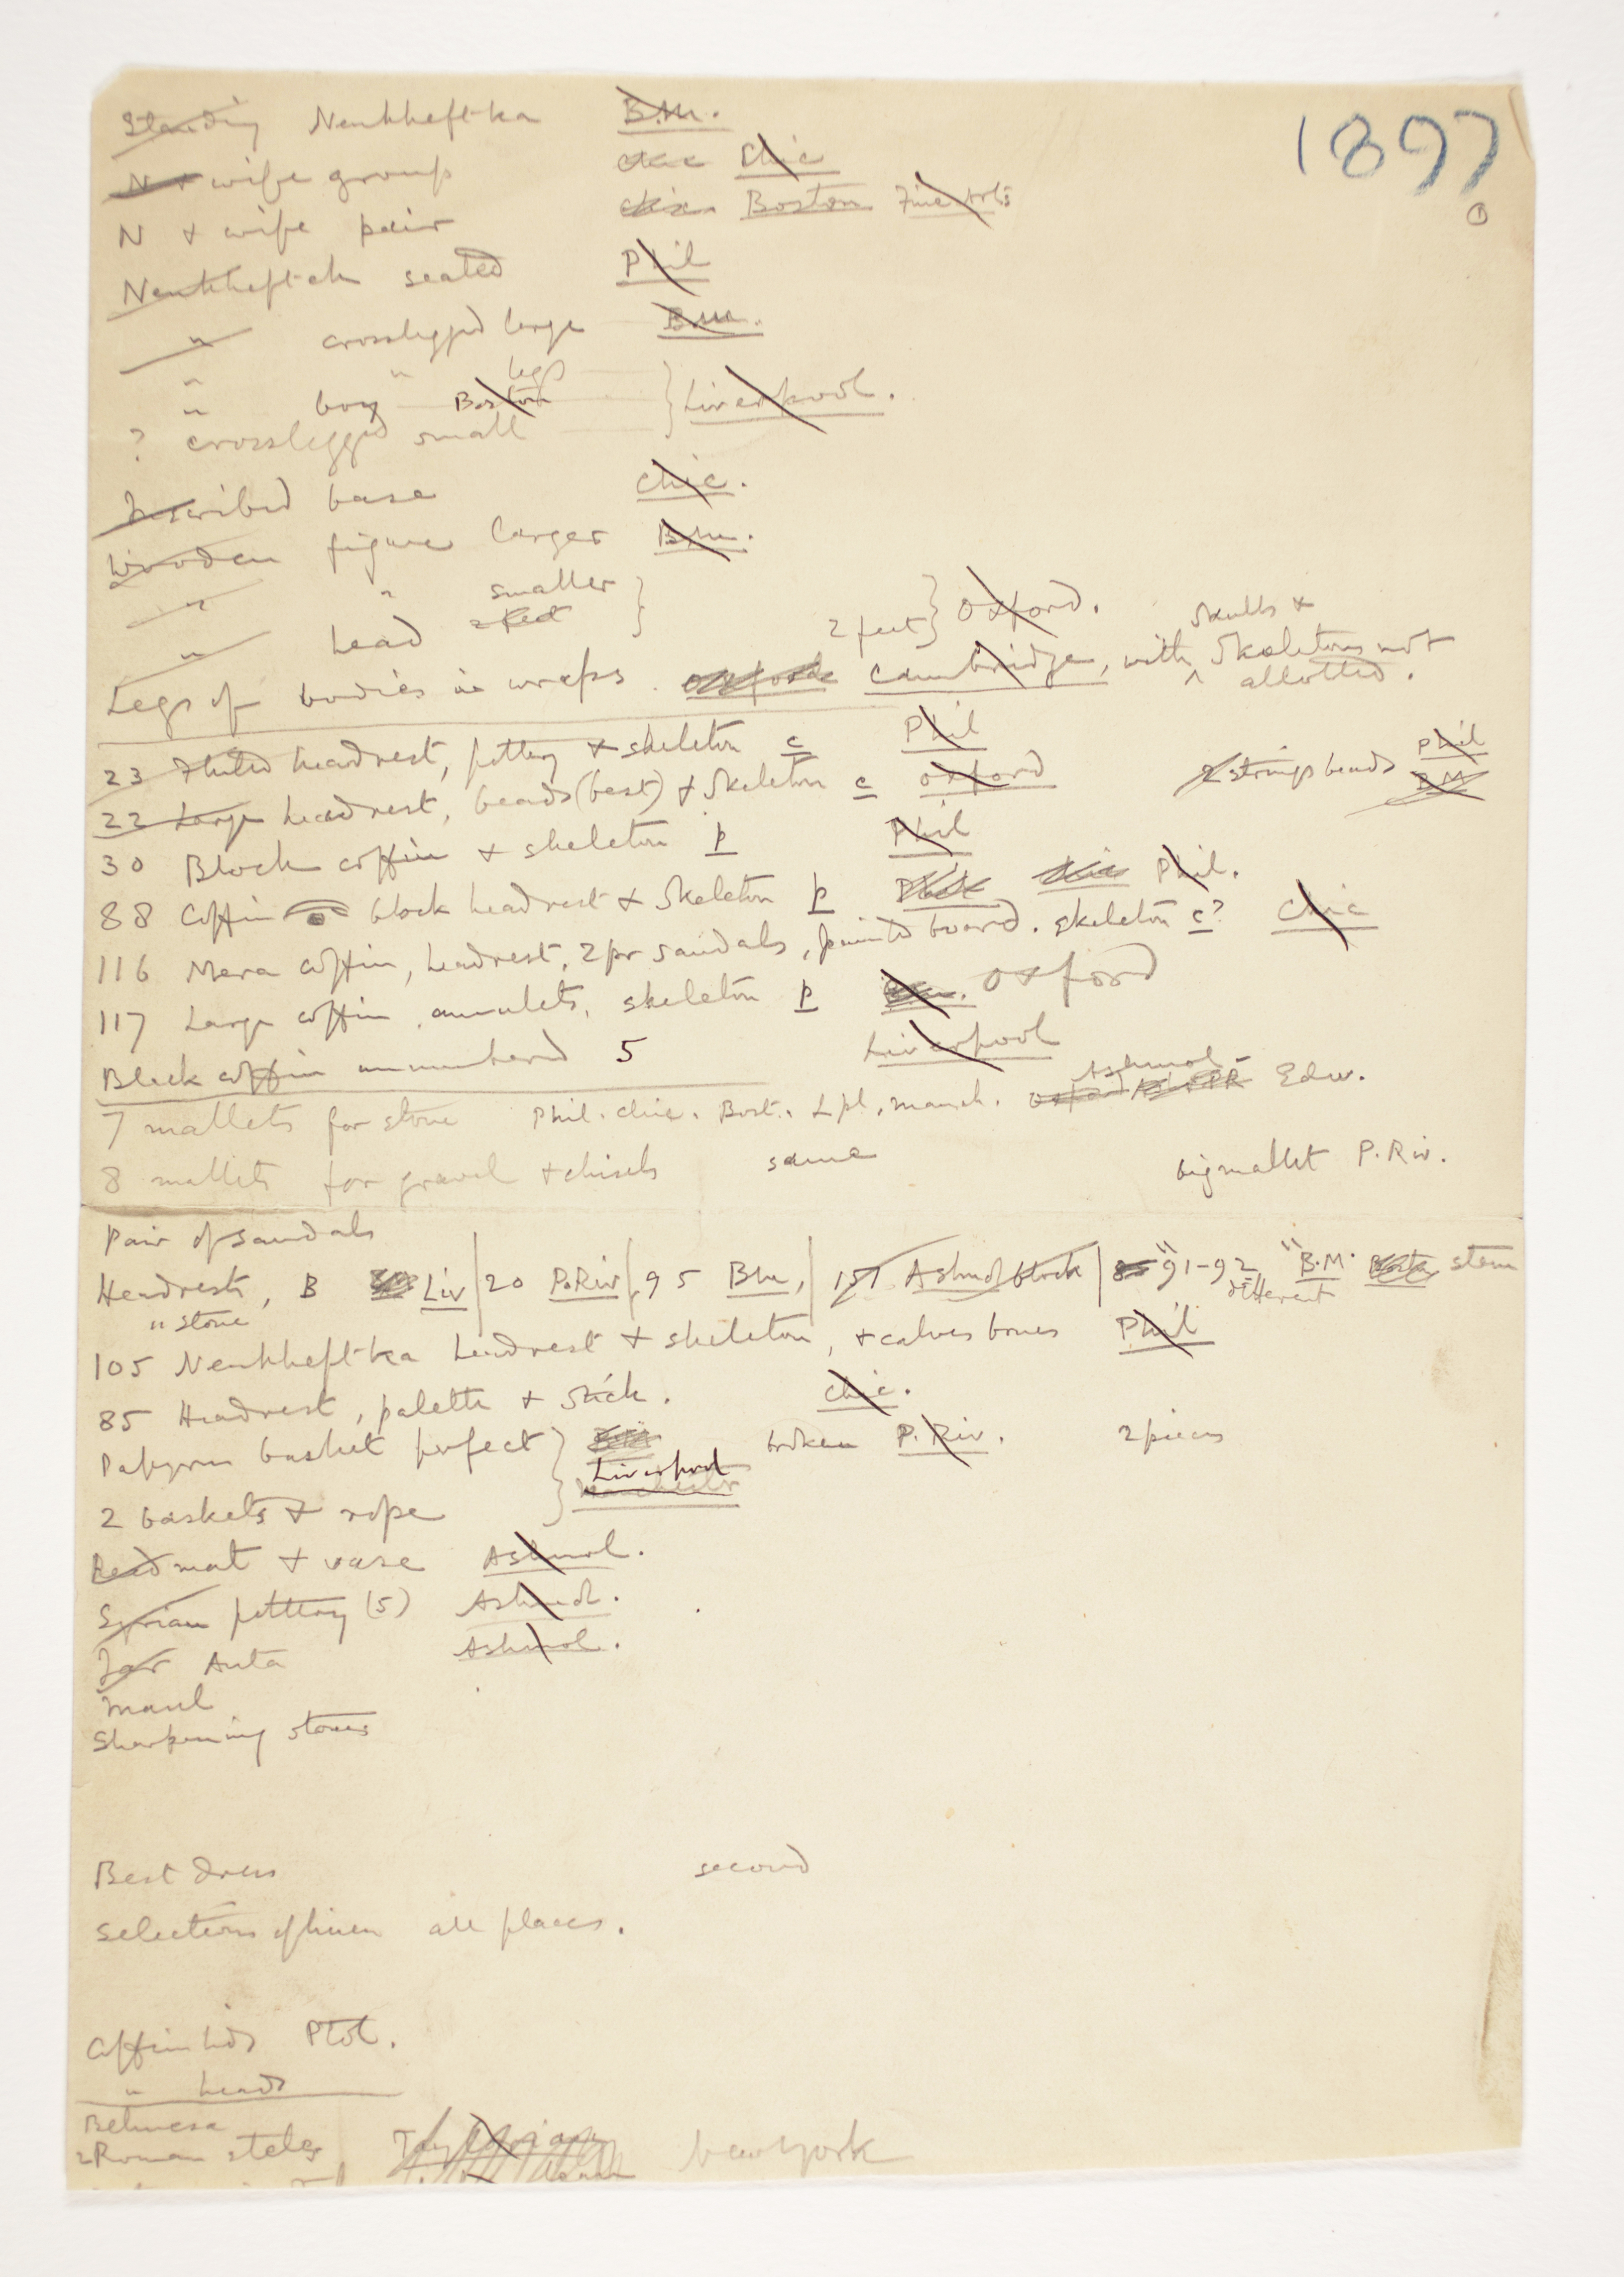 1897
Standing Nenkheft-ka B.M.
N + wife group Chic
N + wife pair Boston Fine Arts
Nenkheftek seated Phil
" crosslegged large B.M.
" " legs
" boy Boston Liverpool.
? crosslegged small
Inscribed base Chic.
Wooden figure larger B.M.
" " smaller
" head 2 feet 2 feet Oxford.
Legs of bodies in wraps. Oxford Cambridge, with skulls + skeletons not allotted.
23 Fluted headrest, pottery + skeleton c Phil
22 Large headrest, beads (best) + skeleton c Oxford 2 strings beads Phil B.M.
30 Block coffin + skeleton p Phil
88 Coffin block headrest + skeleton p Chic Phil.
116 Mera coffin, headrest, 2 pr sandals, painted board. skeleton c? Chic
117 Large coffin, amulets, skeleton p Oxford
Block coffin unnumbered 5 Liverpool
7 mallets for stone Phil. Chic. Bost. Lpl. Manch. Oxford Ashmol Edw.
8 mallets for gravel + chisels same big mallet P. Riv.
Pair of sandals
Headrests, B Liv | 20 P. Riv | 95 BM, | 151 Ashmol block | 91-92 " B.M. stem
" stone different
105 Nenkheftka headrest + skeleton, + calves bones Phil
85 Headrest, palette + stick. Chic.
Papyrus basket perfect Liverpool broken P. Riv. 2 pieces
2 baskets + rope Manchester
Reed mat + vase Ashmol.
Syrian pottery (5) Ashmol.
Jar Anta Ashmol.
Maul
Sharpening stones
Best dress second
Selections of linen all places.
Coffin lids Ptol.
" heads
Behnesa
2 Roman steles New York